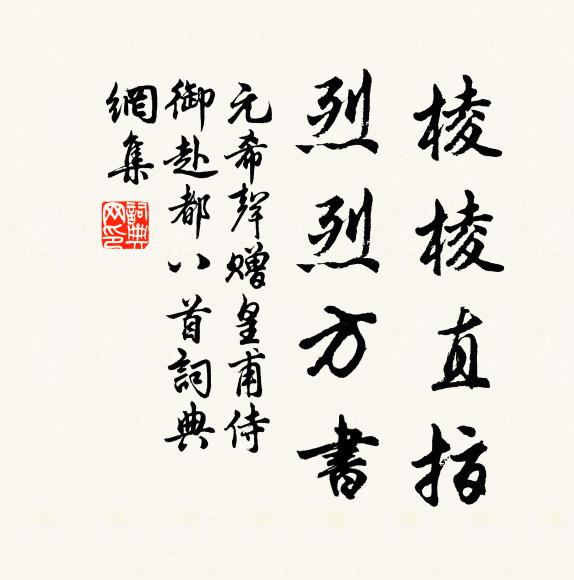 棱棱直指
烈烈方書
元希聲贈皇甫侍
御赴都八首詞典
網集
詞典
网印